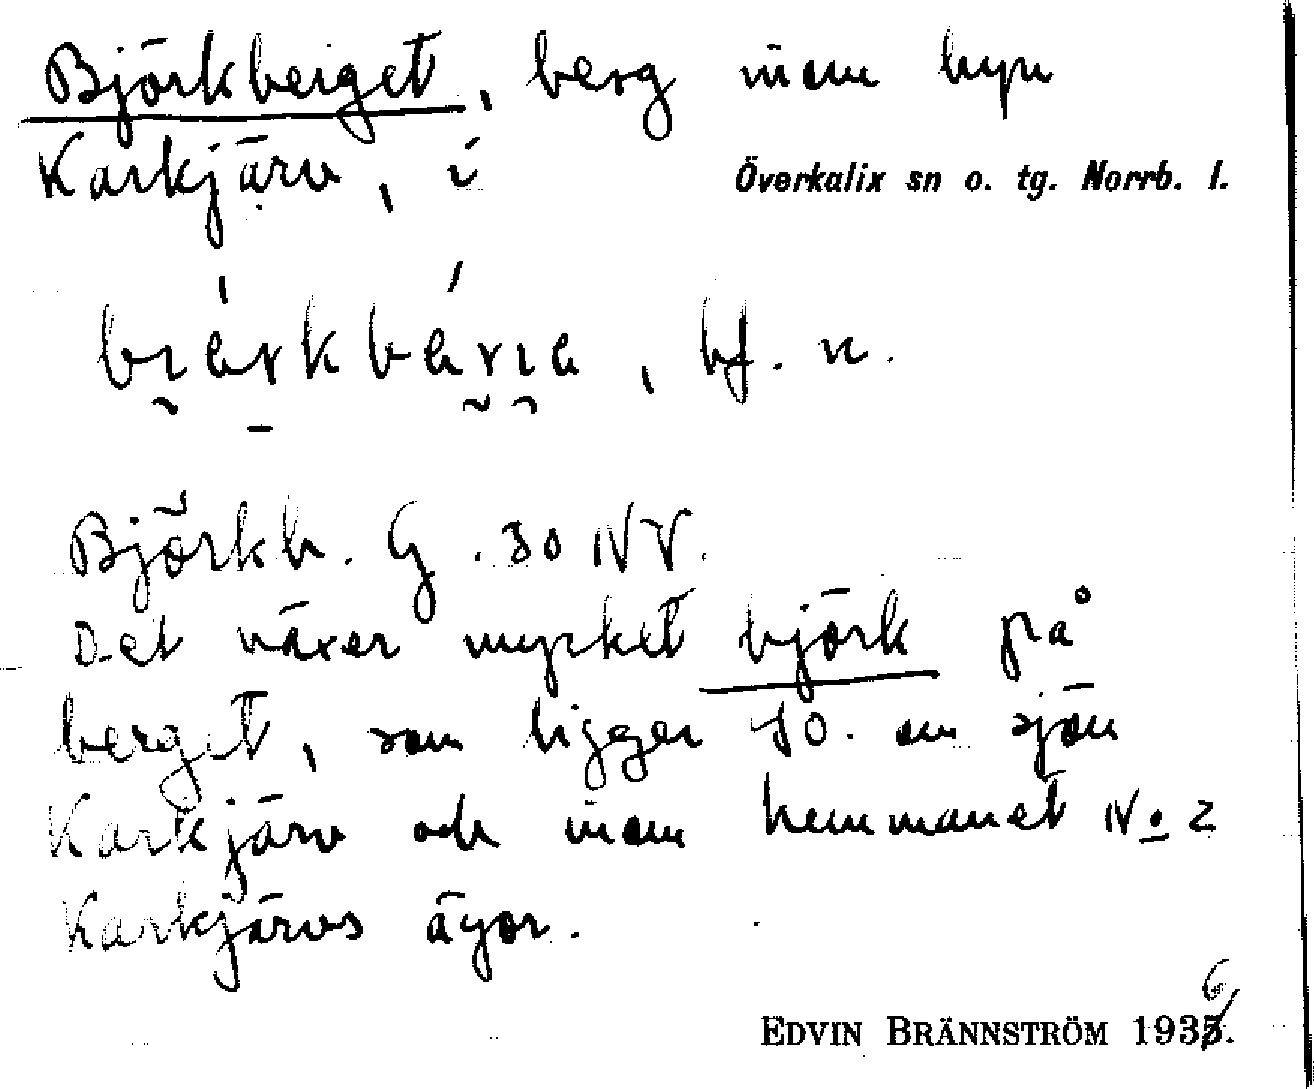 Björkberget, berg inom byn
Karkjärv, i Överkalix sn o. tg. Norrb. l.
bf. n.
Björkb. G. 30 NV.
Det växer mycket björk på
berget, som ligger SO. om sjön
Karkjärv och inom hemmanet No 2
Karkjärvs ägor.
EDVIN BRÄNNSTRÖM 1936.